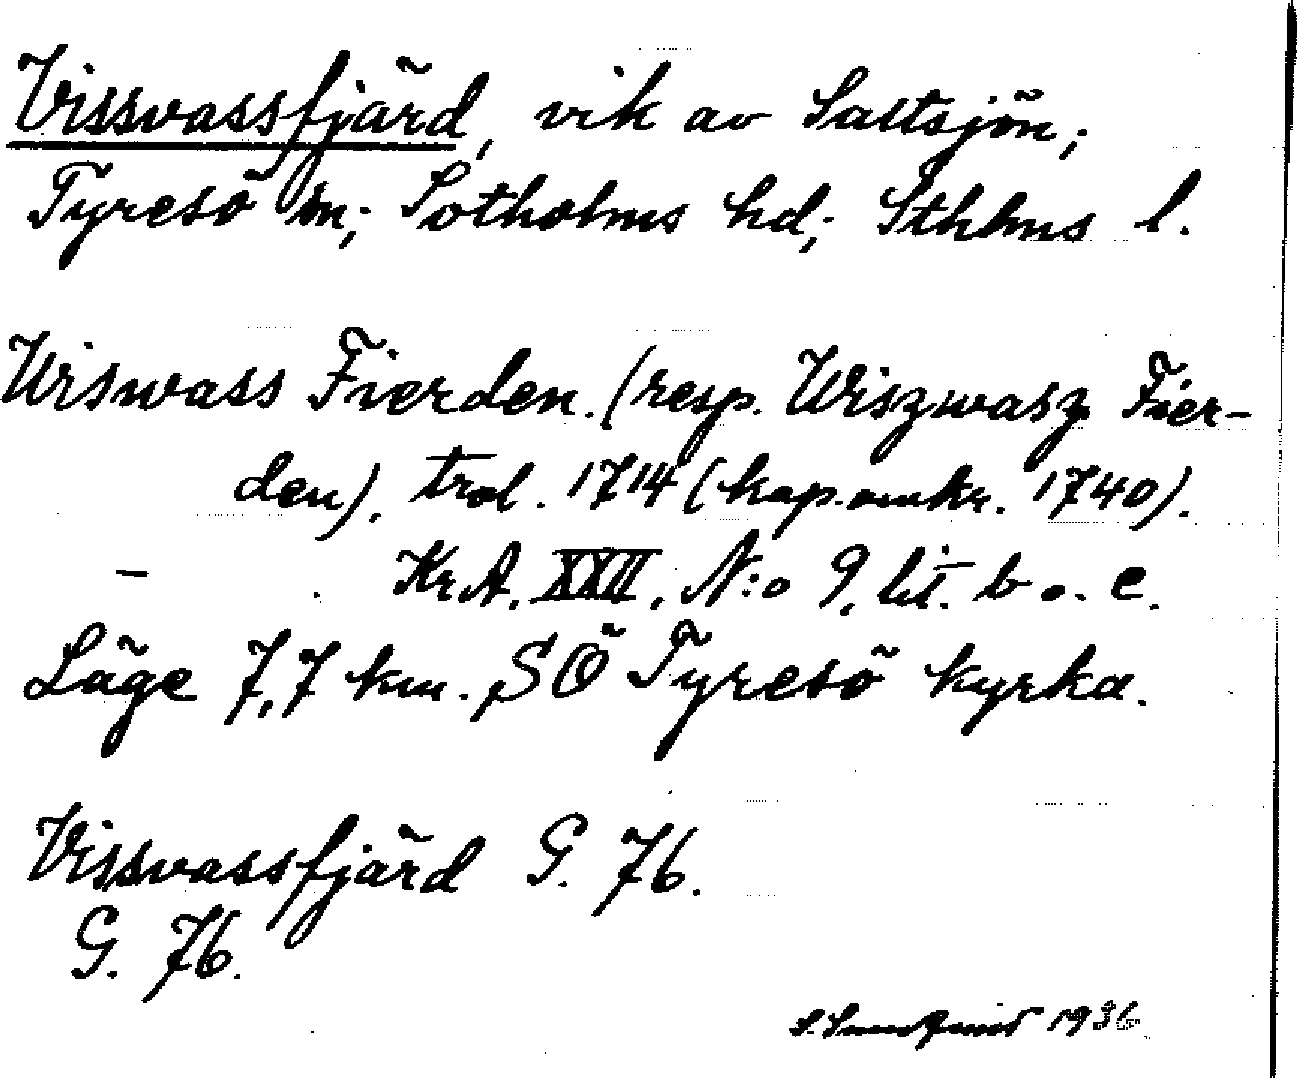 Vissvassfjärd, vik av Saltsjön;
Tyresö sn; Sotholms hd; Sthlms l.
Wiswass Fierden. (resp. Wiszwasz Fier-
den), trol. 1714 (kap. omkr. 1740).
- Kr. A. XXII, N:o 9, lit. b o. c.
Läge 7,7 km. SÖ Tyresö kyrka.
Vissvassfjärd G. 76.
G. 76.
1936